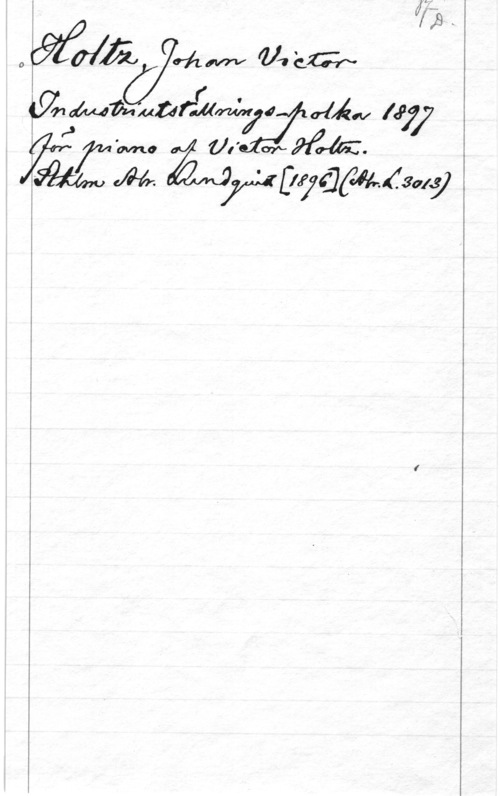 Holtz, Johan Victor
Industriutställnings-polka 1897
för piano af Victor Holtz.
Sthlm Abr. Lundquist [1896] (Abr. L. 3013)